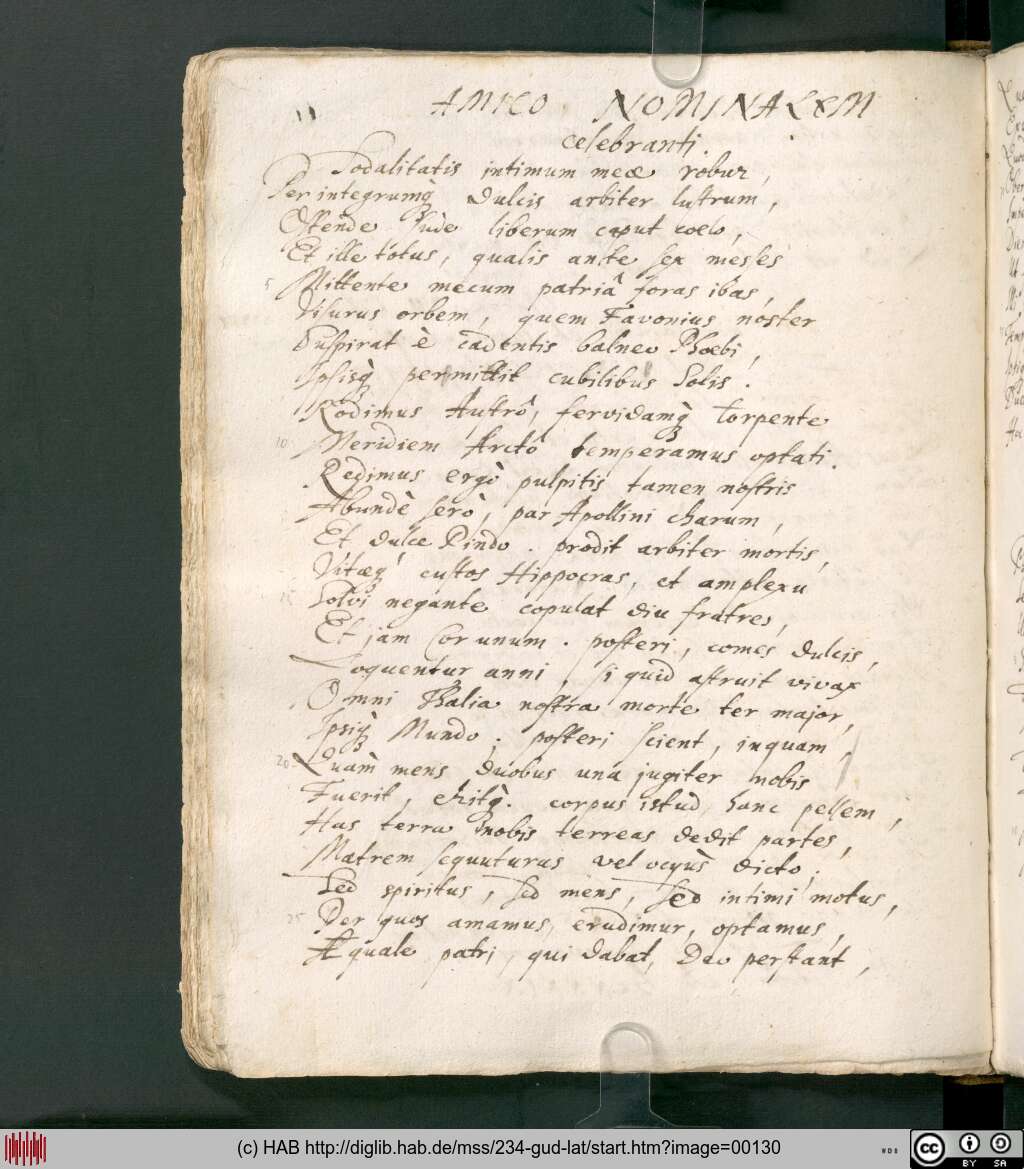 AMICO NOMINALEM
celebranti.
Sodalitatis intimum meæ robur,
Per integrumq́ dulcis arbiter lustrum,
Ostende Jude liberum caput coelo,
Et ille totus, qualis ante sex menses
5 Mittente mecum patriâ foras ibas,
Visurus orbem, quem Favonius noster
Suspirat è cadentis balneo Phoebi,
Ipsisq́ permittit cubilibus Solis.
Rodimus Austrô, fervidamq́ torpente
10 Meridiem Arctô temperamus optati.
Redimus ergò pulpitis tamen nostris
Abundè serò, par Apollini charum,
Et dulce Pindo. prodit arbiter mortis,
Vitæq́ custos Hippocras, et amplexu
15 Solvi negante copulat diu fratres,
Et jam Cor unum. posteri, comes dulcis,
Loquentur anni, si quid astruit vivax
Omni Thalia nostra morte ter major,
Ipsiq́ Mundo; posteri scient, inquam,
20 Quàm mens duobus una jugiter nobis
Fuerit, eritq́. corpus istud, hanc pellem,
Has terra nobis terreas dedit partes,
Matrem sequuturus vel ocyùs dicto;
Sed spiritus, sed mens, sed intimi motus,
25 Per quos amamus, erudimur, optamus,
Æquale patri, qui dabat, Deo perstant,
(c) HAB http://diglib.hab.de/mss/234-gud-lat/start.htm?image=00130
WDB
cc BY SA